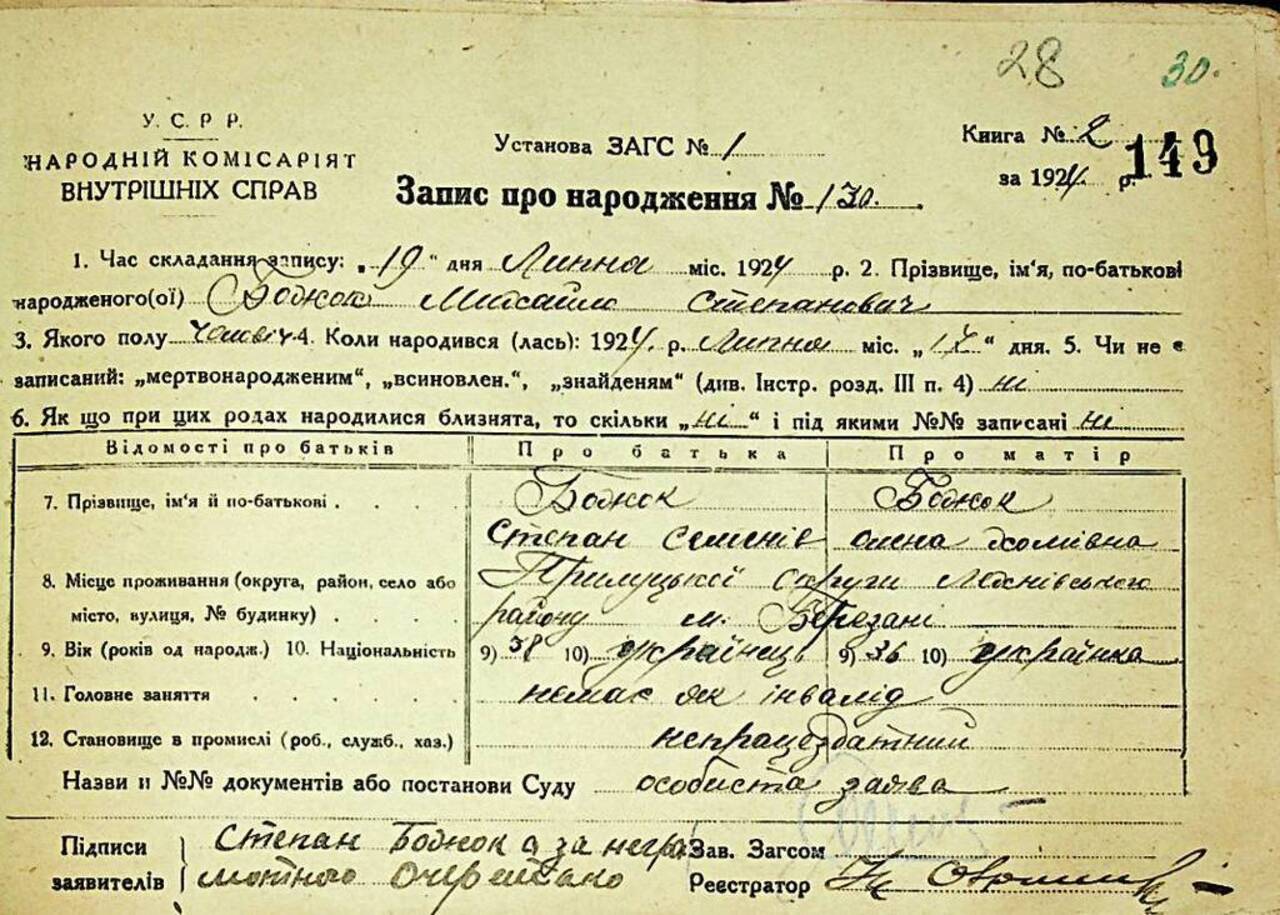 28 30.
У.С.Р.Р.
НАРОДНІЙ КОМІСАРІЯТ
ВНУТРІШНІХ СПРАВ
Установа ЗАГС № 1
Книга № 2
149
за 1924 р.
Запис про народження № 130.
1. Час складання запису: „19" дня Липня міс. 1924 р. 2. Прізвище, ім'я, по-батькові
народженого(ої) Боднюк Михайло Степанович
3. Якого полу чоловіч 4. Коли народився (лась): 1924. р. Липня міс. „17" дня. 5. Чи не є
записаний: „мертвонародженим", „всиновлен.", „знайденям" (див. Інстр. розд. III п. 4) ні
6. Як що при цих родах народилися близнята, то скільки „ні" і під якими №№ записані ні
Відомості про батьків Про батька Про матір
7. Прізвище, ім'я й по-батькові . . . . Боднюк Боднюк
Степан Семенів Олена
8. Місце проживання (округа, район, село або Прилуцької округи
місто, вулиця, № будинку) . . . . району м. Березані
9. Вік (років од народж.) 10. Національність 9) 38 10) українець 9) 36 10) українка
11. Головне заняття . . . . . немає як інвалід
12. Становище в промислі (роб., служб., хаз.) непрацоздатний
Назви и №№ документів або постанови Суду особиста заява
Підписи Степан Боднюк а за негра
Зав. Загсом
заявителів мотного
Реєстратор